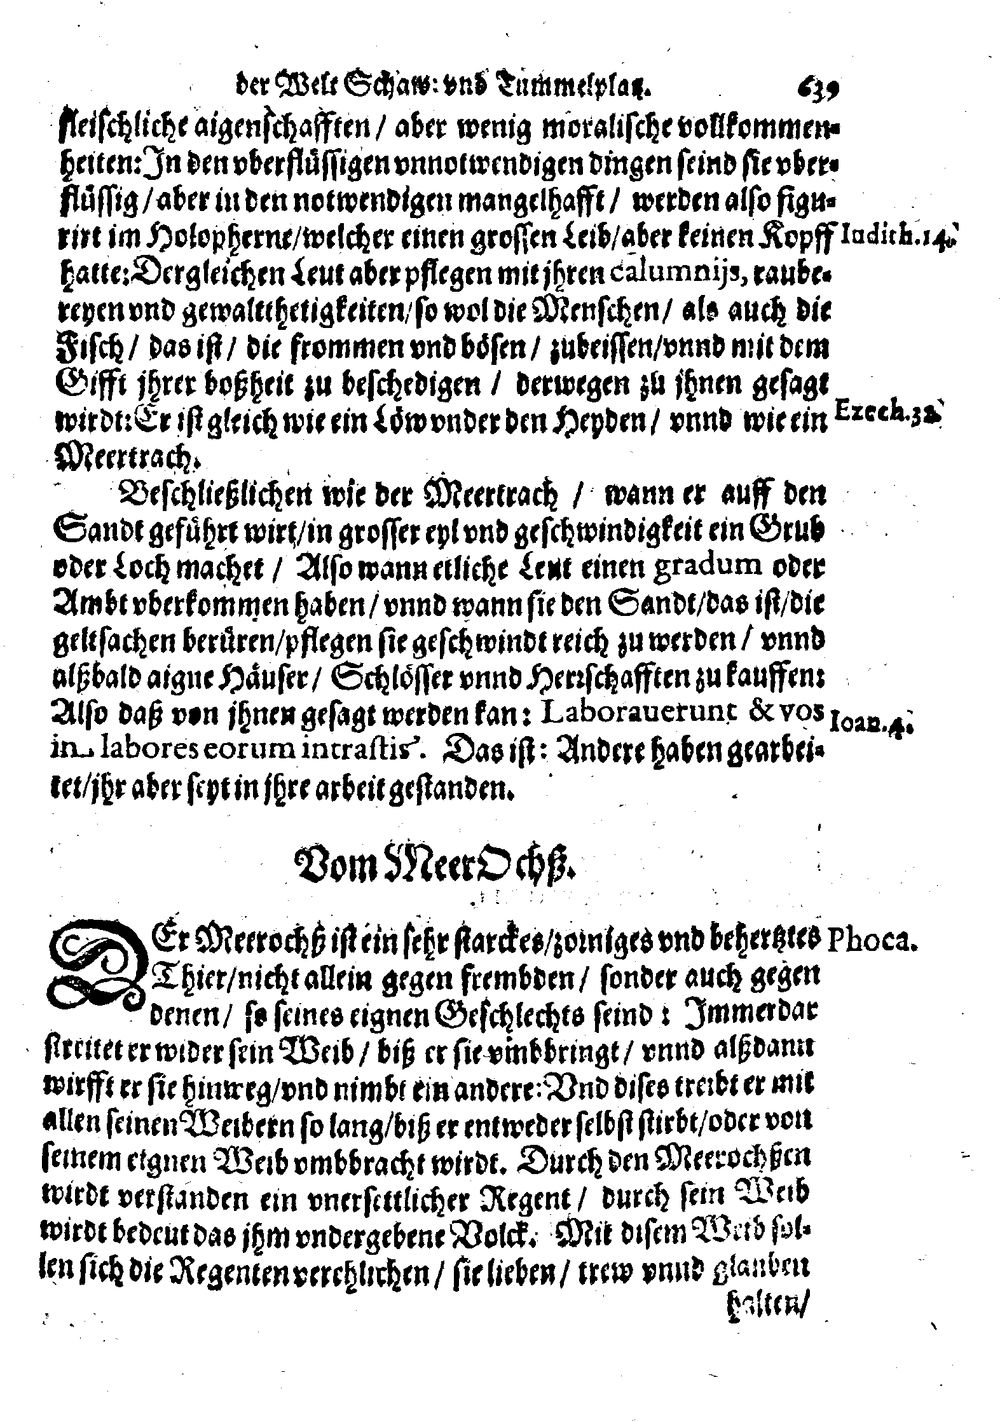 der Welt Schaw: vnd Tummelplatz. 639
fleischliche aigenschafften / aber wenig moralische vollkommen-
heiten: In den vberflüssigen vnnotwendigen dingen seind sie vber-
flüssig / aber in den notwendigen mangelhafft / werden also figu-
rirt im Holopherne/welcher einen grossen Leib/aber keinen Kopff Iudith.14.
hatte: Dergleichen Leut aber pflegen mit jhren calumnijs, raube-
reyen vnd gewaltthetigkeiten/so wol die Menschen / als auch die
Fisch / das ist / die frommen vnd bösen / zubeissen/vnnd mit dem
Gifft jhrer boßheit zu beschedigen / derwegen zu jhnen gesagt
wirdt: Er ist gleich wie ein Löw vnder den Heyden / vnnd wie ein Ezech.32.
Meertrach.
Beschließlichen wie der Meertrach / wann er auff den
Sandt geführt wirt/in grosser eyl vnd geschwindigkeit ein Grub
oder Loch machet / Also wann etliche Leut einen gradum oder
Ambt vberkommen haben / vnnd wann sie den Sandt/das ist/die
geltsachen berüren/pflegen sie geschwindt reich zu werden / vnnd
alßbald aigne Häuser / Schlösser vnnd Herrschafften zu kauffen:
Also daß von jhnen gesagt werden kan: Laborauerunt & vos Ioan.4.
in labores eorum intrastis. Das ist: Andere haben gearbei-
tet/jhr aber seyt in jhre arbeit gestanden.
Vom MeerOchß.
DEr Meerochß ist ein sehr starckes/zorniges vnd behertztes Phoca.
Thier/nicht allein gegen frembden / sonder auch gegen
denen / so seines eignen Geschlechts seind: Immerdar
streitet er wider sein Weib / biß er sie vmbbringt / vnnd alßdann
wirfft er sie hinweg/vnd nimbt ein andere: Vnd dises treibt er mit
allen seinen Weibern so lang/biß er entweder selbst stirbt/oder von
seinem eignen Weib vmbbracht wirdt. Durch den Meerochßen
wirdt verstanden ein vnersettlicher Regent / durch sein Weib
wirdt bedeut das jhm vndergebene Volck. Mit disem Weib sol-
len sich die Regenten verehlichen / sie lieben / trew vnnd glauben
halten/